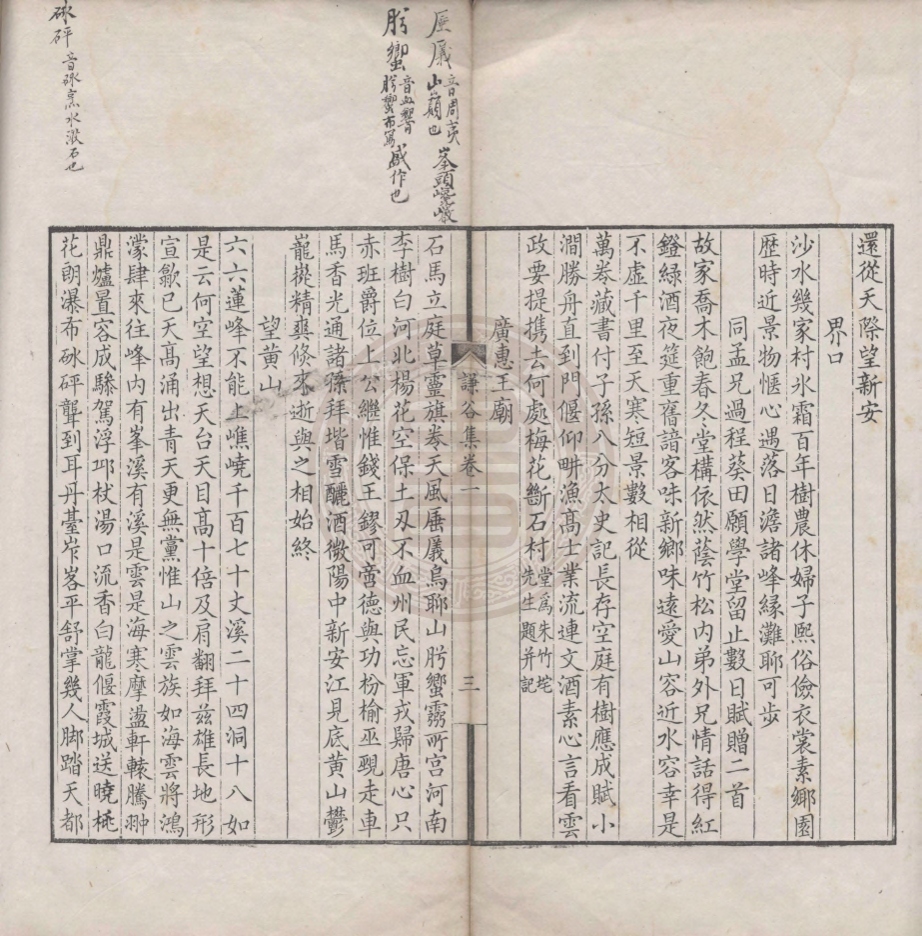 還從天際望新安
界口
沙水幾家村氷霜百年樹農休婦子熙俗儉衣裳素鄉園
歴時近景物愜心遇落日澹諸峰緣灘聊可步
同孟兄過程葵田願學堂留止數日賦贈二首
故家喬木飽春冬堂構依然蔭竹松内弟外兄情話得紅
鐙綠酒夜筵重舊諳客味新鄉味遠愛山容近水容幸是
不虛千里至天寒短景數相從
萬卷藏書付子孫八分太史記長存空庭有樹應成賦小
澗勝舟直到門偃仰畊漁髙士業流連文酒素心言看雲
政要提携去何處梅花斷石村堂爲朱竹垞先生題并記
廣惠王廟
謙谷集卷一
三
石馬立庭草靈旗卷天風厜㕒烏聊山肹蠁霛所宫河南
李樹白河北楊花空保土刃不血州民忘軍戎歸唐心只
赤班爵位上公繼惟錢王鏐可啻德與功枌榆巫覡走車
馬香光通諸孫拜堦雪釃酒微陽中新安江見底黄山鬱
巃嵸精爽倏來逝與之相始終
望黄山
六六蓮峰不能上嶕嶢千百七十丈溪二十四洞十八如
是云何空望想天台天目髙十倍及肩翻拜兹雄長地形
宣歙已天髙涌出青天更無黨惟山之雲族如海雲將鴻
濛肆來往峰内有峯溪有溪是雲是海寒摩盪軒轅騰翀
鼎爐置容成驂駕浮邛杖湯口流香白龍偃霞城送曉桃
花朗瀑布砅砰聾到耳丹臺岝峉平舒掌幾人脚踏天都
厜㕒音周㕒山巔也峯頭巉巖
肹蠁音血響肹蠁布寫盛作也
砅砰音砯烹水激石也